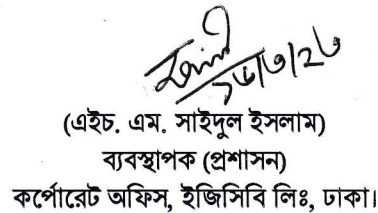 (এইচ. এম. সাইদুল ইসলাম)
ব্যবস্থাপক (প্রশাসন)
কর্পোরেট অফিস, ইজিসিবি লিঃ, ঢাকা।